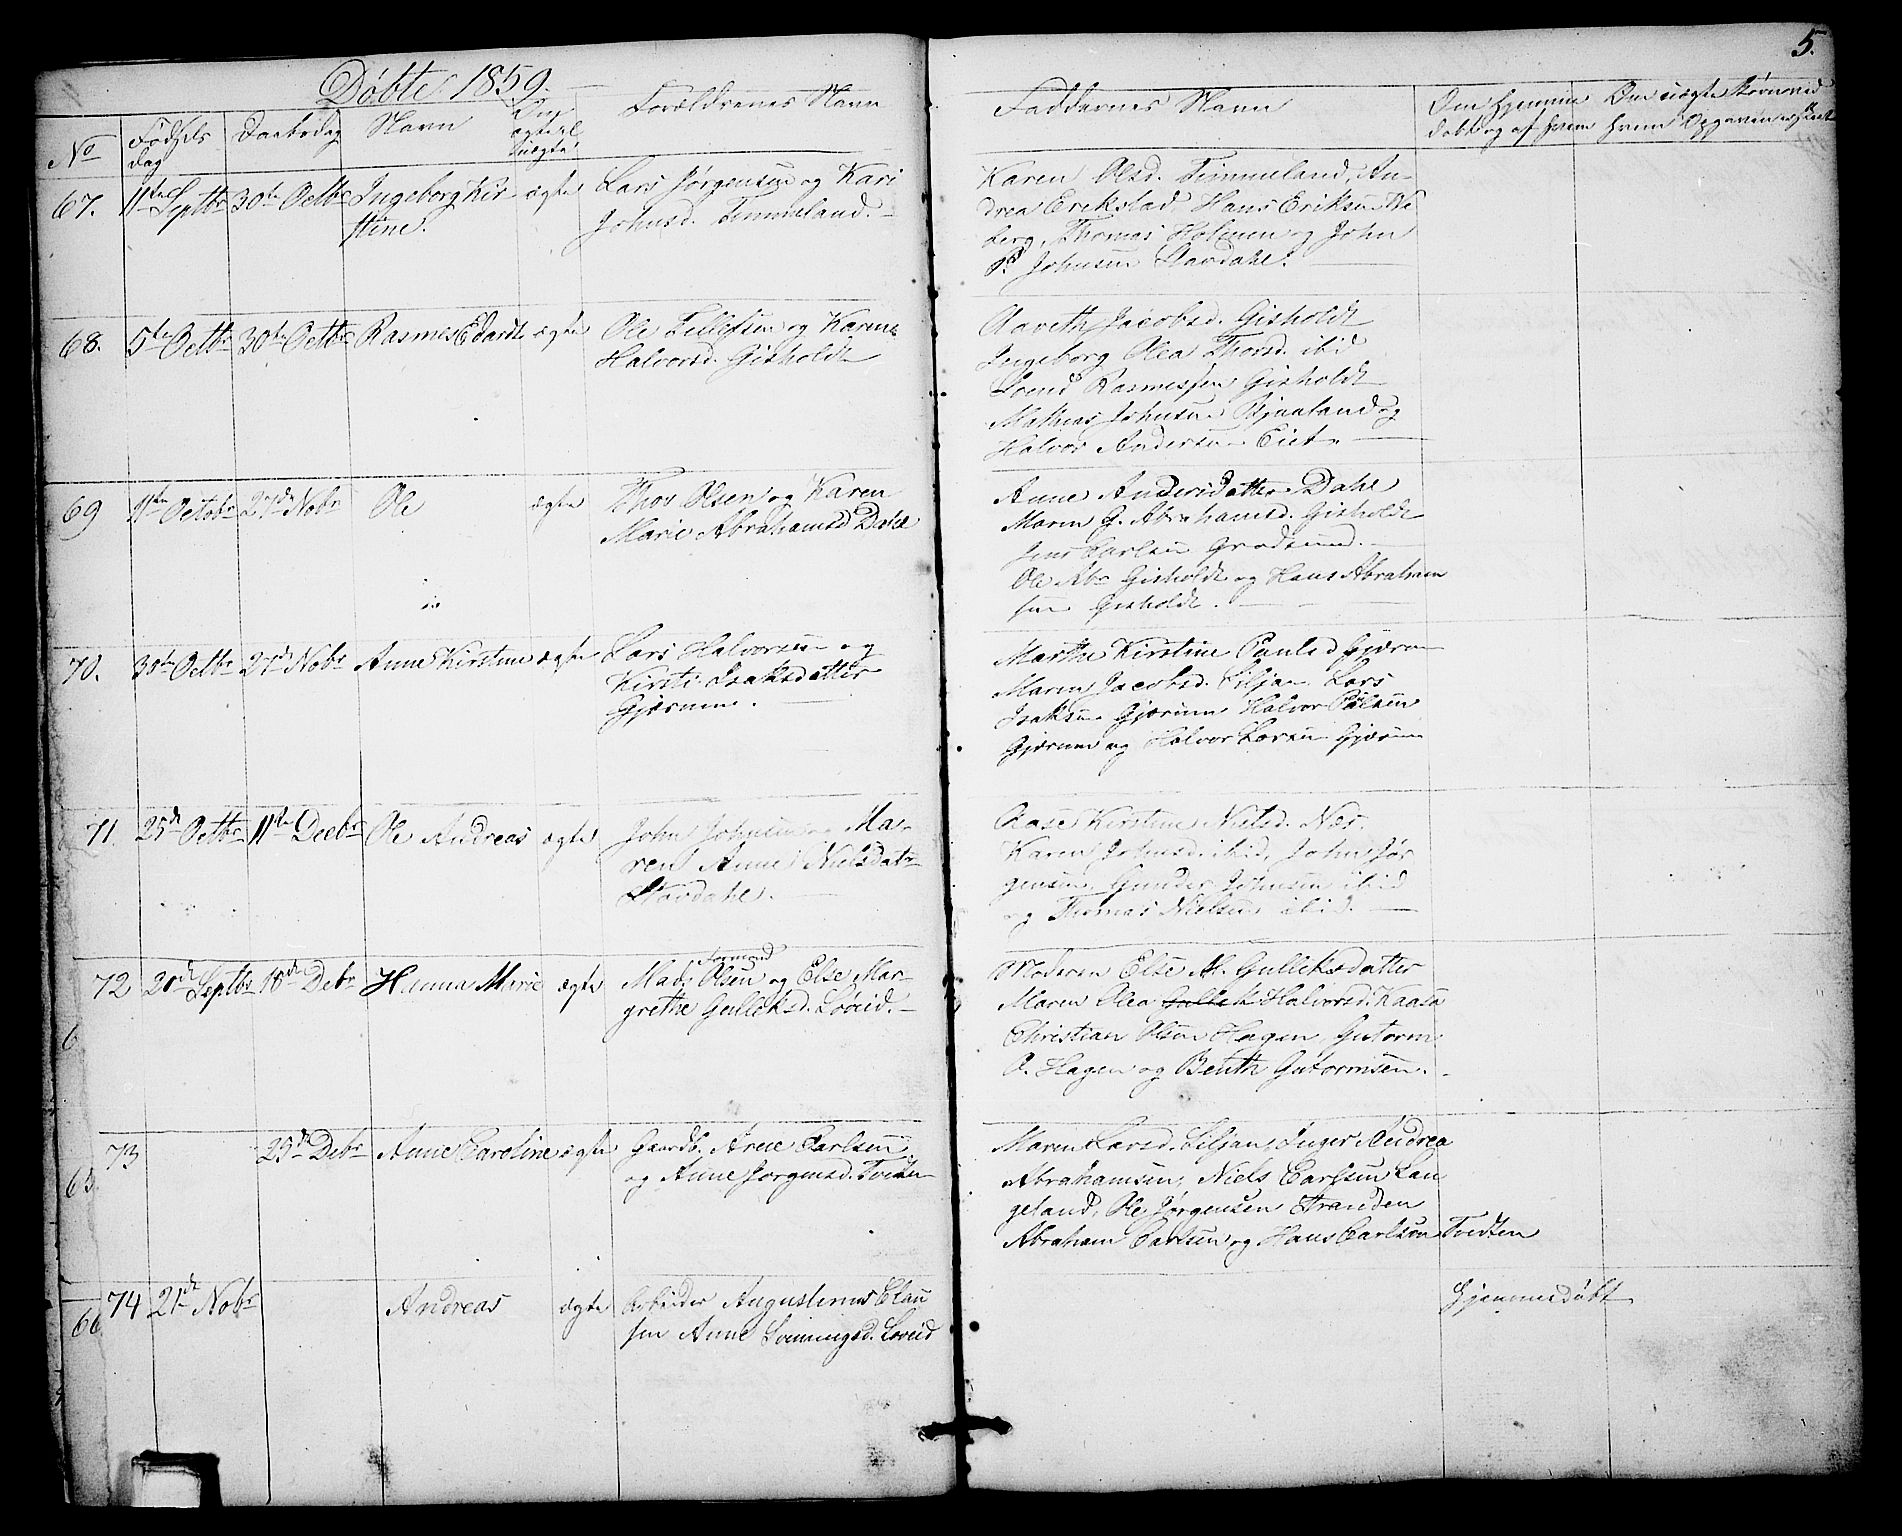 5.
Døbte 1859.
No
Fødsels
dag
Daabsdag
Navn
Om
ægte el
uægte
Forældrenes Navn
Faddernes Navn
Om hjemme
døbt og af hvem
Om uægte Børn ved
hvem Opgaven er skeet
67.
11te Septbr
30te Octbr
Ingeborg Kir
stine.
ægte
Lars Jørgensen og Kari
Johnsd. Timmeland.
Karen Olsd. Timmeland, An-
drea Erikstad Hans Eriksen
berg, Thomas Holmen og John
Johnsen Stavdahl.
68.
5te Octbr
30te Octbr
Rasmes Edardt
ægte
Ole Tellefsen og Karen
Halvorsd. Gisholdt
Aareth Jacobsd. Gisholdt
Ingeborg Olea Thorsd. ibid
Rasmessen Gisholdt
Mathias Johnsen Bjaaland og
Halvor Andersen Eiet
69
11te Octobr
27de Nobr
Ole
ægte
Thor Olsen og Karen
Marie Abrahamsd Dahl
Anne Andersdatter Dahl
Maren G. Abrahamsd. Gisholdt
Jens Carlsen Grodsund.
Ole Abr Gisholdt og Hans Abraham
sen Gisholdt.
70.
30te Octbr
27de Nobr
Anne Kirstine
ægte
Lars Halvorsen og
Kirsti Isaksdatter
Gjærum.
Marthe Kirstine Paulsd Gjærum
Maren Jacobsd. Siljan Lars
Isaksen Gjærum Halvor Pålsen
Gjærum og Halvor Larsen Gjærum
71.
25de Octbr
11te Decbr
Ole Andreas
ægte
John Johnsen og Ma-
ren Anne Nielsdatr
Stavdahl.
Aase Kirstine Nielsd. Næs.
Karen Johnsd. ibid, John Jør
gensen Gunder Johnsen ibid
og Thomas Nielsen ibid.
72
20de Septbr
18de Debr
Hanna Marie
ægte
Formand
Mads Olsen og Else Mar-
grethe Gulleksd. Løveid.
Moderen Else M. Gulleksdatter
Maren Olea Gullek Halvorsd. Kaasa
Christian Olsen Hagen, Gutorm
O. Hagen og Benth Gutormsen.
73
25de Debr
Anne Caroline
ægte
Gaardb. Arne Carlsen
og Anne Jørgensd. Tvedten
Maren Larsd. Siljan, Inger Andrea
Abrahamsen, Niels Carlsen Lan
geland, Ole Jørgensen Stranden
Abraham Carlsen og Hans Carlson Tvedten
65
74
21de Nobr
Andreas
ægte
Arbeider Augustinus Clau
sen Anne Svenningsd. Løveid
Hjemmedøbt
66